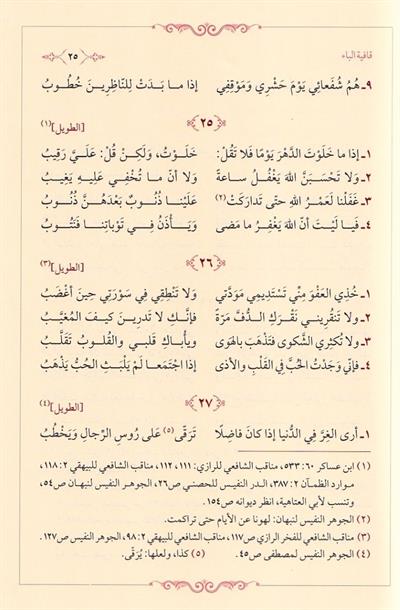 قافية الباء
٢٥
٩ـ هُمُ شُفَعائِي يَوْمَ حَشْرِي وَمَوْقِفِي إذا ما بَدَتْ لِلنَّاظِرِينَ خُطُوبُ
٢٥
[الطويل] (١)
١ـ إذا ما خَلَوْتَ الدَّهْرَ يَوْمًا فَلا تَقُلْ: خَلَوْتُ، وَلَكِنْ قُلْ: عَلَيَّ رَقِيبُ
٢ـ وَلا تَحْسَبَنَّ اللهَ يَغْفُلُ ساعَةً وَلا أنّ ما تُخْفِي عَلَيهِ يَغِيبُ
٣ـ غَفَلْنا لَعَمْرُ اللهِ حتّى تَدارَكَتْ (٢) عَلَيْنا ذُنُوبٌ بَعْدَهُنَّ ذُنُوبُ
٤ـ فَيا لَيْتَ أنّ اللهَ يَغْفِرُ ما مَضى وَيَأْذَنُ فِي تَوْباتِنا فَنَتُوبُ
٢٦
[الطويل] (٣)
١ـ خُذِي العَفْوَ مِنِّي تَسْتَدِيمِي مَوَدَّتي وَلا تَنْطِقِي فِي سَوْرَتِي حِينَ أغْضَبُ
٢ـ ولا تَنْقُرِيني نَقْرَكِ الدُّفَّ مَرّةً فإنَّكِ لا تَدرِينَ كَيفَ المُغَيَّبُ
٣ـ ولا تُكثِري الشَّكوى فتَذهَبَ بالهَوى ويأباكِ قَلبي والقُلوبُ تَقَلَّبُ
٤ـ فإنّي وَجَدْتُ الحُبَّ في القَلْبِ والأذى إذا اجتَمَعا لَمْ يَلْبَثِ الحُبُّ يَذْهَبُ
٢٧
[الطويل] (٤)
١ـ أرى الغِرَّ في الدُّنيا إذا كانَ فاضِلًا تَرَقّى (٥) عَلى رُوسِ الرِّجالِ وَيَخْطُبُ
(١) ابن عساكر ٦٠: ٥٣٣، مناقب الشافعي للرازي: ١١١، ١١٢، مناقب الشافعي للبيهقي ٢: ١١٨،
موارد الظمآن ٢: ٣٨٧، الدر النفيس للحصني ص٢٦، الجوهر النفيس لنبهان ص٥٤،
وتنسب لأبي العتاهية، انظر ديوانه ص١٥٤.
(٢) الجوهر النفيس لنبهان: لهونا عن الأيام حتى تراكمت.
(٣) مناقب الشافعي للفخر الرازي ص١١٧، مناقب الشافعي للبيهقي ٢: ٩٨، الجوهر النفيس ص١٢٧.
(٤) الجوهر النفيس لمصطفى ص٤٥. (٥) كذا، ولعلها: يُرَقّى.